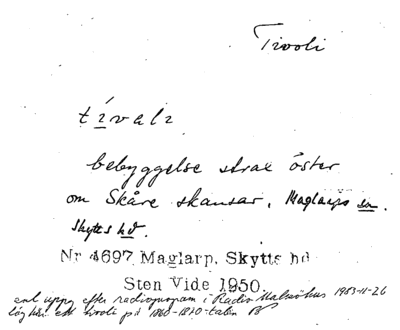 Tivoli
tívalı
bebyggelse strax öster
om Skåre skansar, Maglarps sn.
Skytts hd.
Nr 4697 Maglarp, Skytts hd
Sten Vide 1950.
enl uppg efter radioprogram i Radio Malmöhus 1983-11-26
låg här ett tivoli på 1860-1870-talen